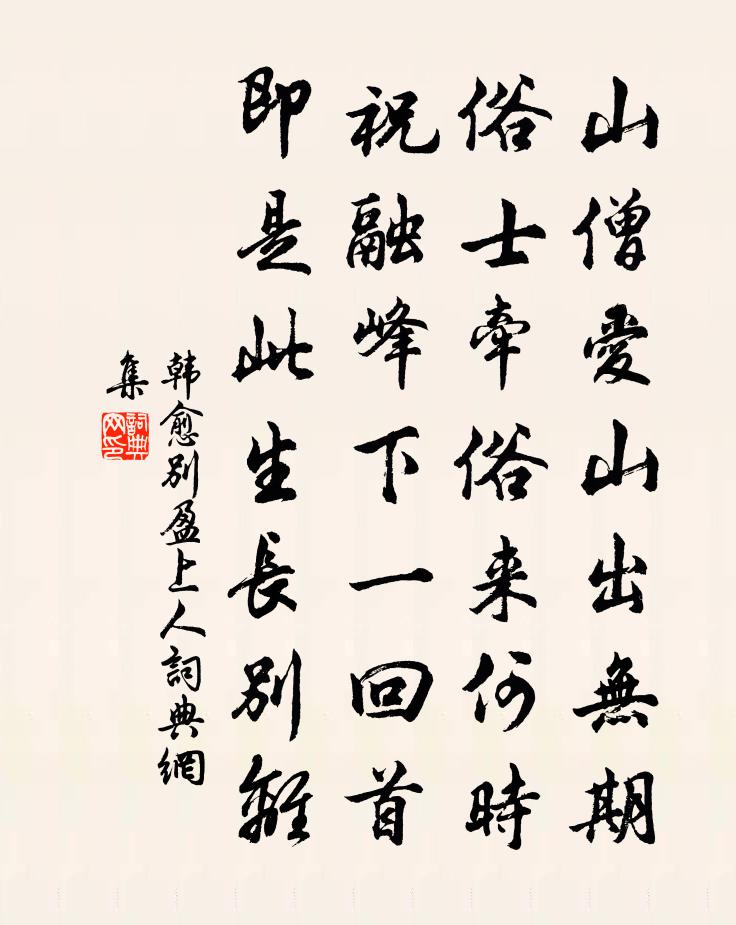 山僧愛山出無期
俗士牽俗来何時
祝融峰下一回首
即是此生長別離
韩愈別盈上人詞典網
集
詞典
网印